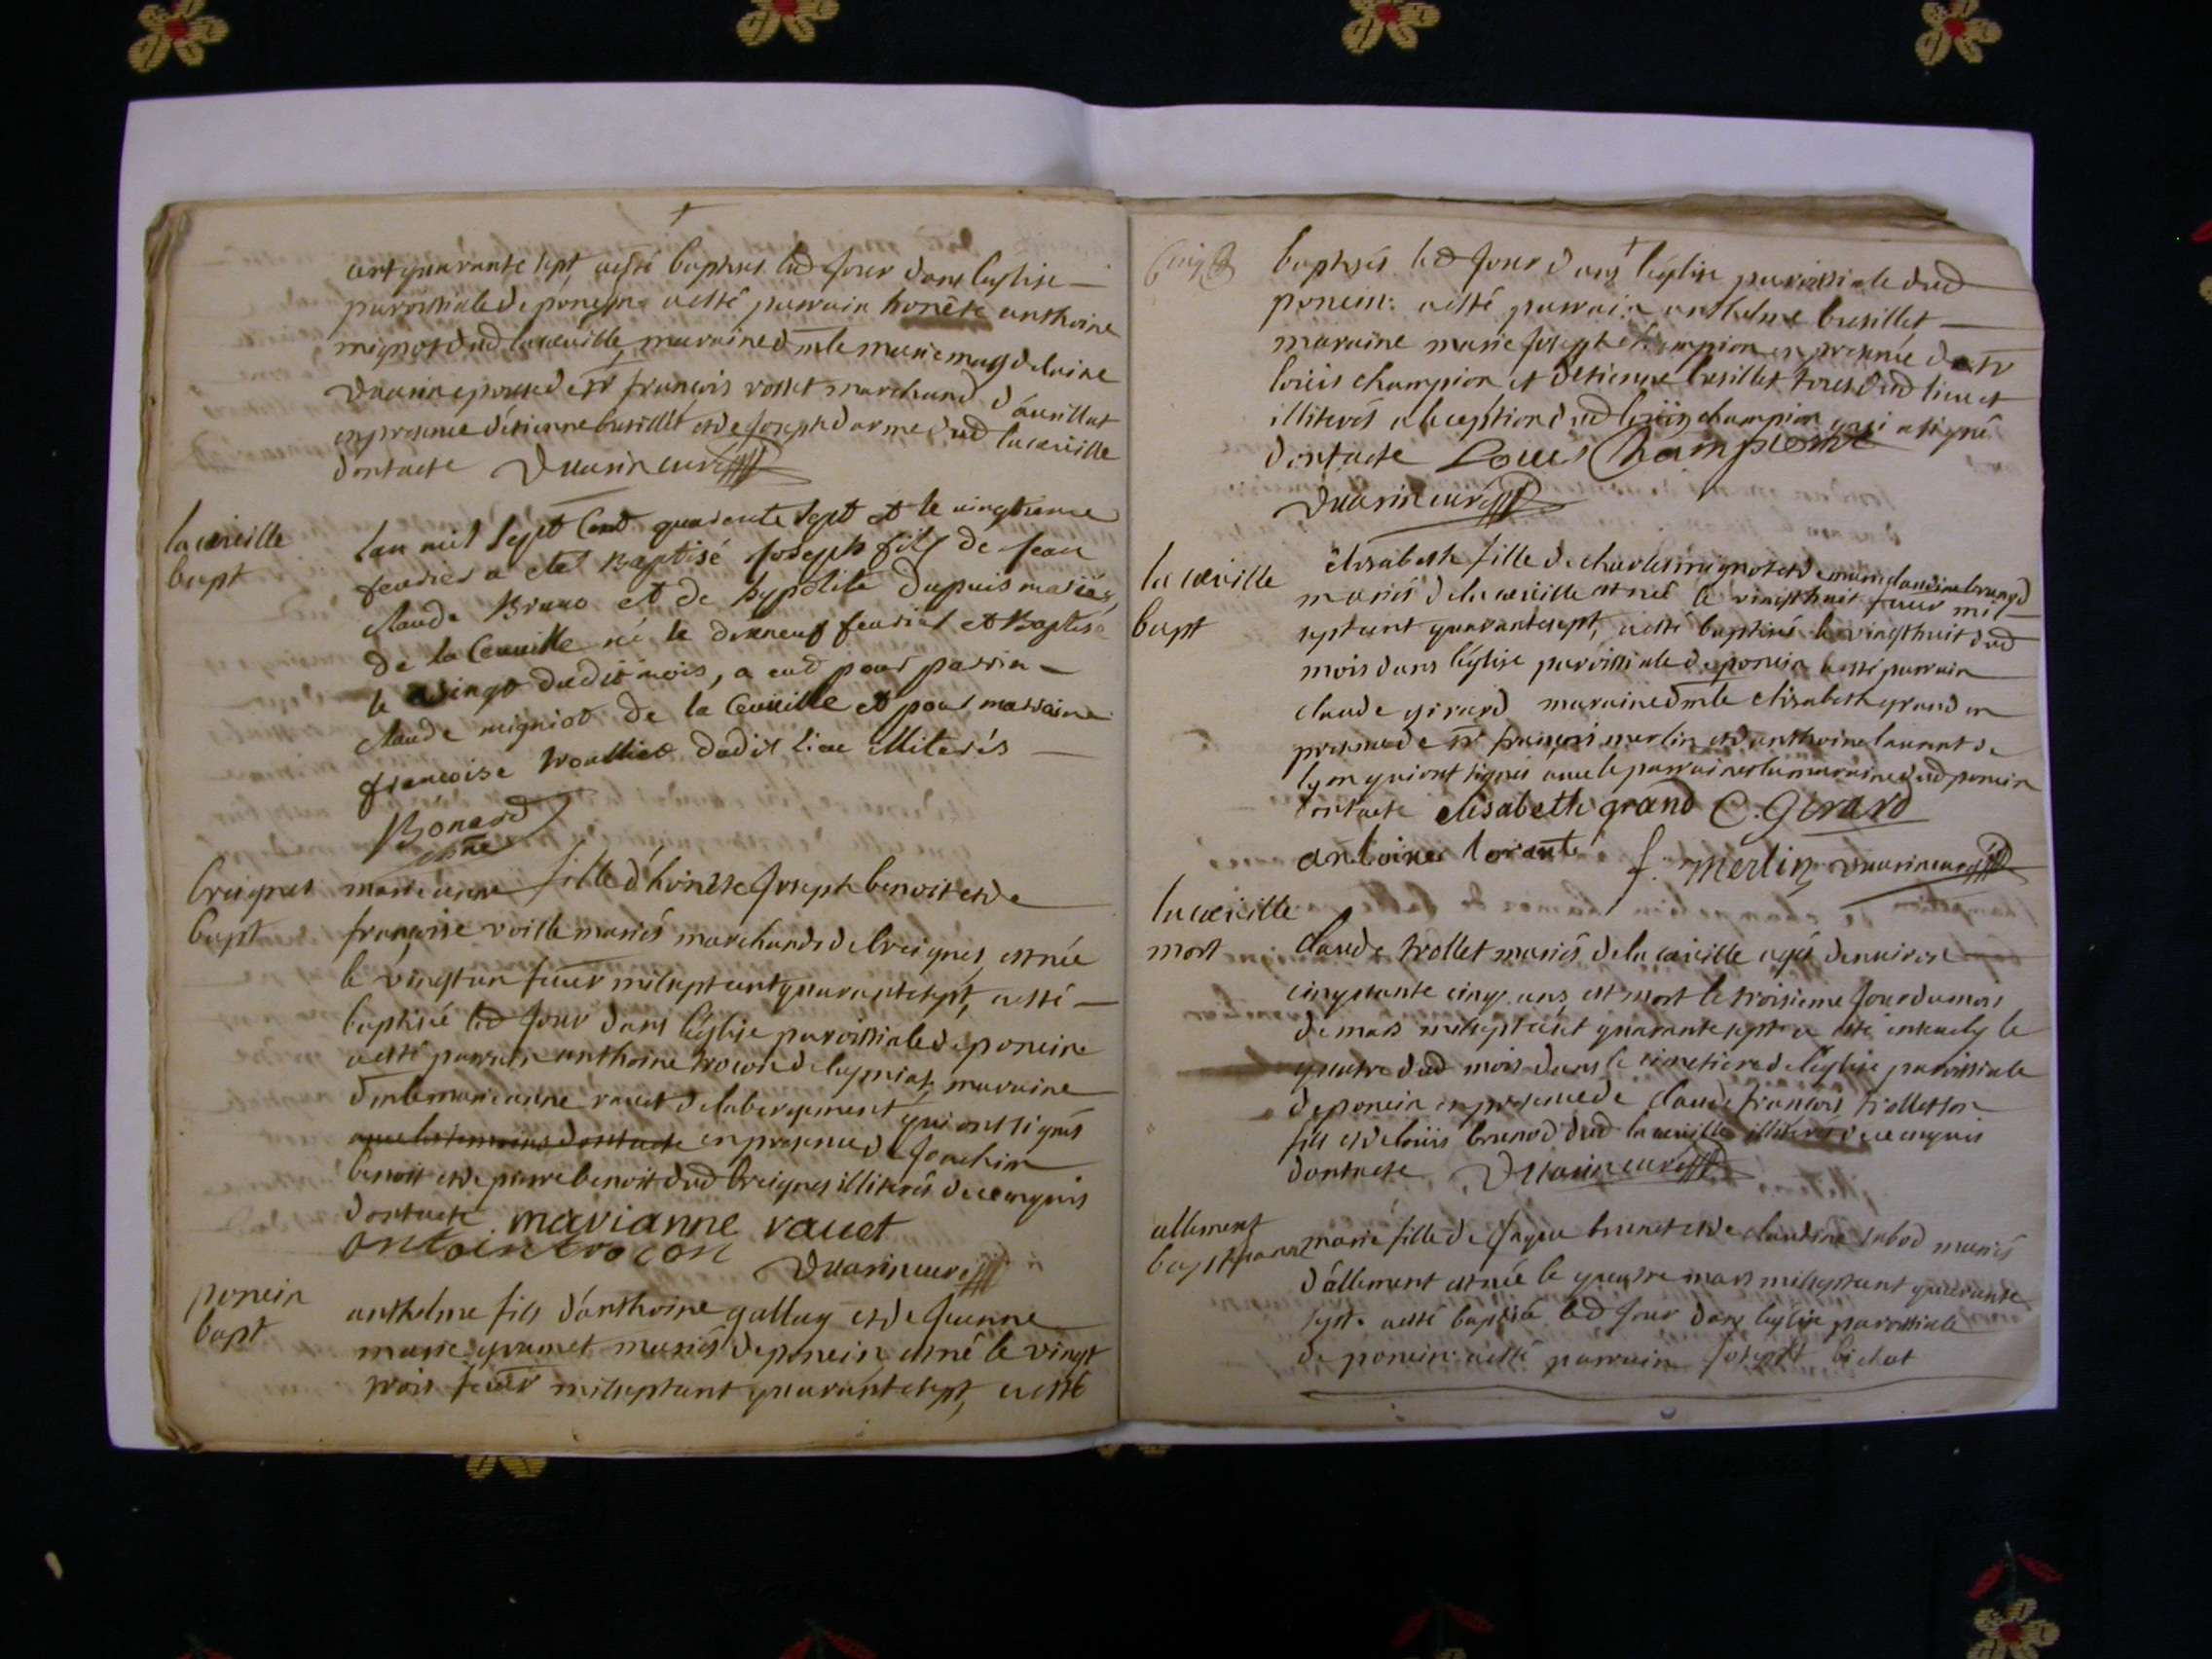 cent quarante sept, a esté baptisé led jour dans leglise
paroissiale de poncin a esté parrain honête anthoine
mignot dud la cueuille, maraine dmle marie magdelaine
duarin epouse de sr françois rosset marchand
en presence d'étienne busillet et de joseph darme dud la cueille
dont acte Duarin curé
la cueille
bapt
lan mil Sept Cent quarante Sept et le vingtieme
feurier a eté Baptisé Joseph fils de Jean
claude Bruno et de hypolite dupuis mariés
de la Ceuuille né le dixneuf feurier et Baptisé
le vingt dudit mois, a eut pour parrin
claude migniot de la Ceuuille et pour marraine
francoise trollliet dudit lieu illiterés
Bonard
breignes
bapt
marie anne fille d'honête joseph benoit et de
françoise voille mariés marchands de breignes, est née
le vingt un feuer mil sept cent quarante sept, a esté
baptisée led jour dans leglise paroissiale de poncin
a esté parrain anthoine trocon de leymiat, maraine
dmle marie anne rauet de labergement qui ont signés
en presence de joachim
benoit et de pierre benoit dud breignes illiterés de ce enquis
dont acte marianne rauet
antoine trocon
Duarin curé
poncin
bapt
anthelme fils d'anthoine gallay et de jeanne
marie gramet mariés de poncin est né le vingt
trois feuer mil sept cent quarante sept, a esté
cinq
baptisés led jour dans léglise paroissiale dud
poncin. a esté parrain anthelme busillet
maraine marie josephte champion en presence de sr
loüis champion et d'étienne busillet tous dud lieu et
illiterés a lexception dud loüis champion qui a signé
dont acte Louis Champion
Duarin curé
la cueille
bapt
élisabeth fille de charles mignot et de marie claudine brunod
mariés de la cueille est née le vingt huit feuer mil
sept cent quarante sept, a esté baptisée le vingt huit dud
mois dans léglise paroissiale de poncin a esté parrain
claude girard maraine dmle élisabeth grand en
presence de sr françois merlin et d'anthoine laurant de
lyon qui ont signés auec le parrain et la maraine dud poncin
dont acte elisabeth grand C. Girard
antoine lorante f. merlin Duarin curé
la cueille
mort
claude trollet mariés de la cueille agé denuiron
cinquante cinq ans est mort le troisieme jour du mois
de mars mil sept cent quarante sept a été enseuely le
quatre dud mois dans le cimetiere de leglise paroissiale
de poncin en presence de claude francois trollet son
fils et de loüis brunod dud la cueille illiterés de ce enquis
dont acte Duarin curé
allement
bapt
marie fille de brunet et de claudine mariés
d'allement est née le quatre mars mil sept cent quarante
sept. a esté baptisée led jour dans leglise paroissiale
de poncin. a esté parrain joseph bichat